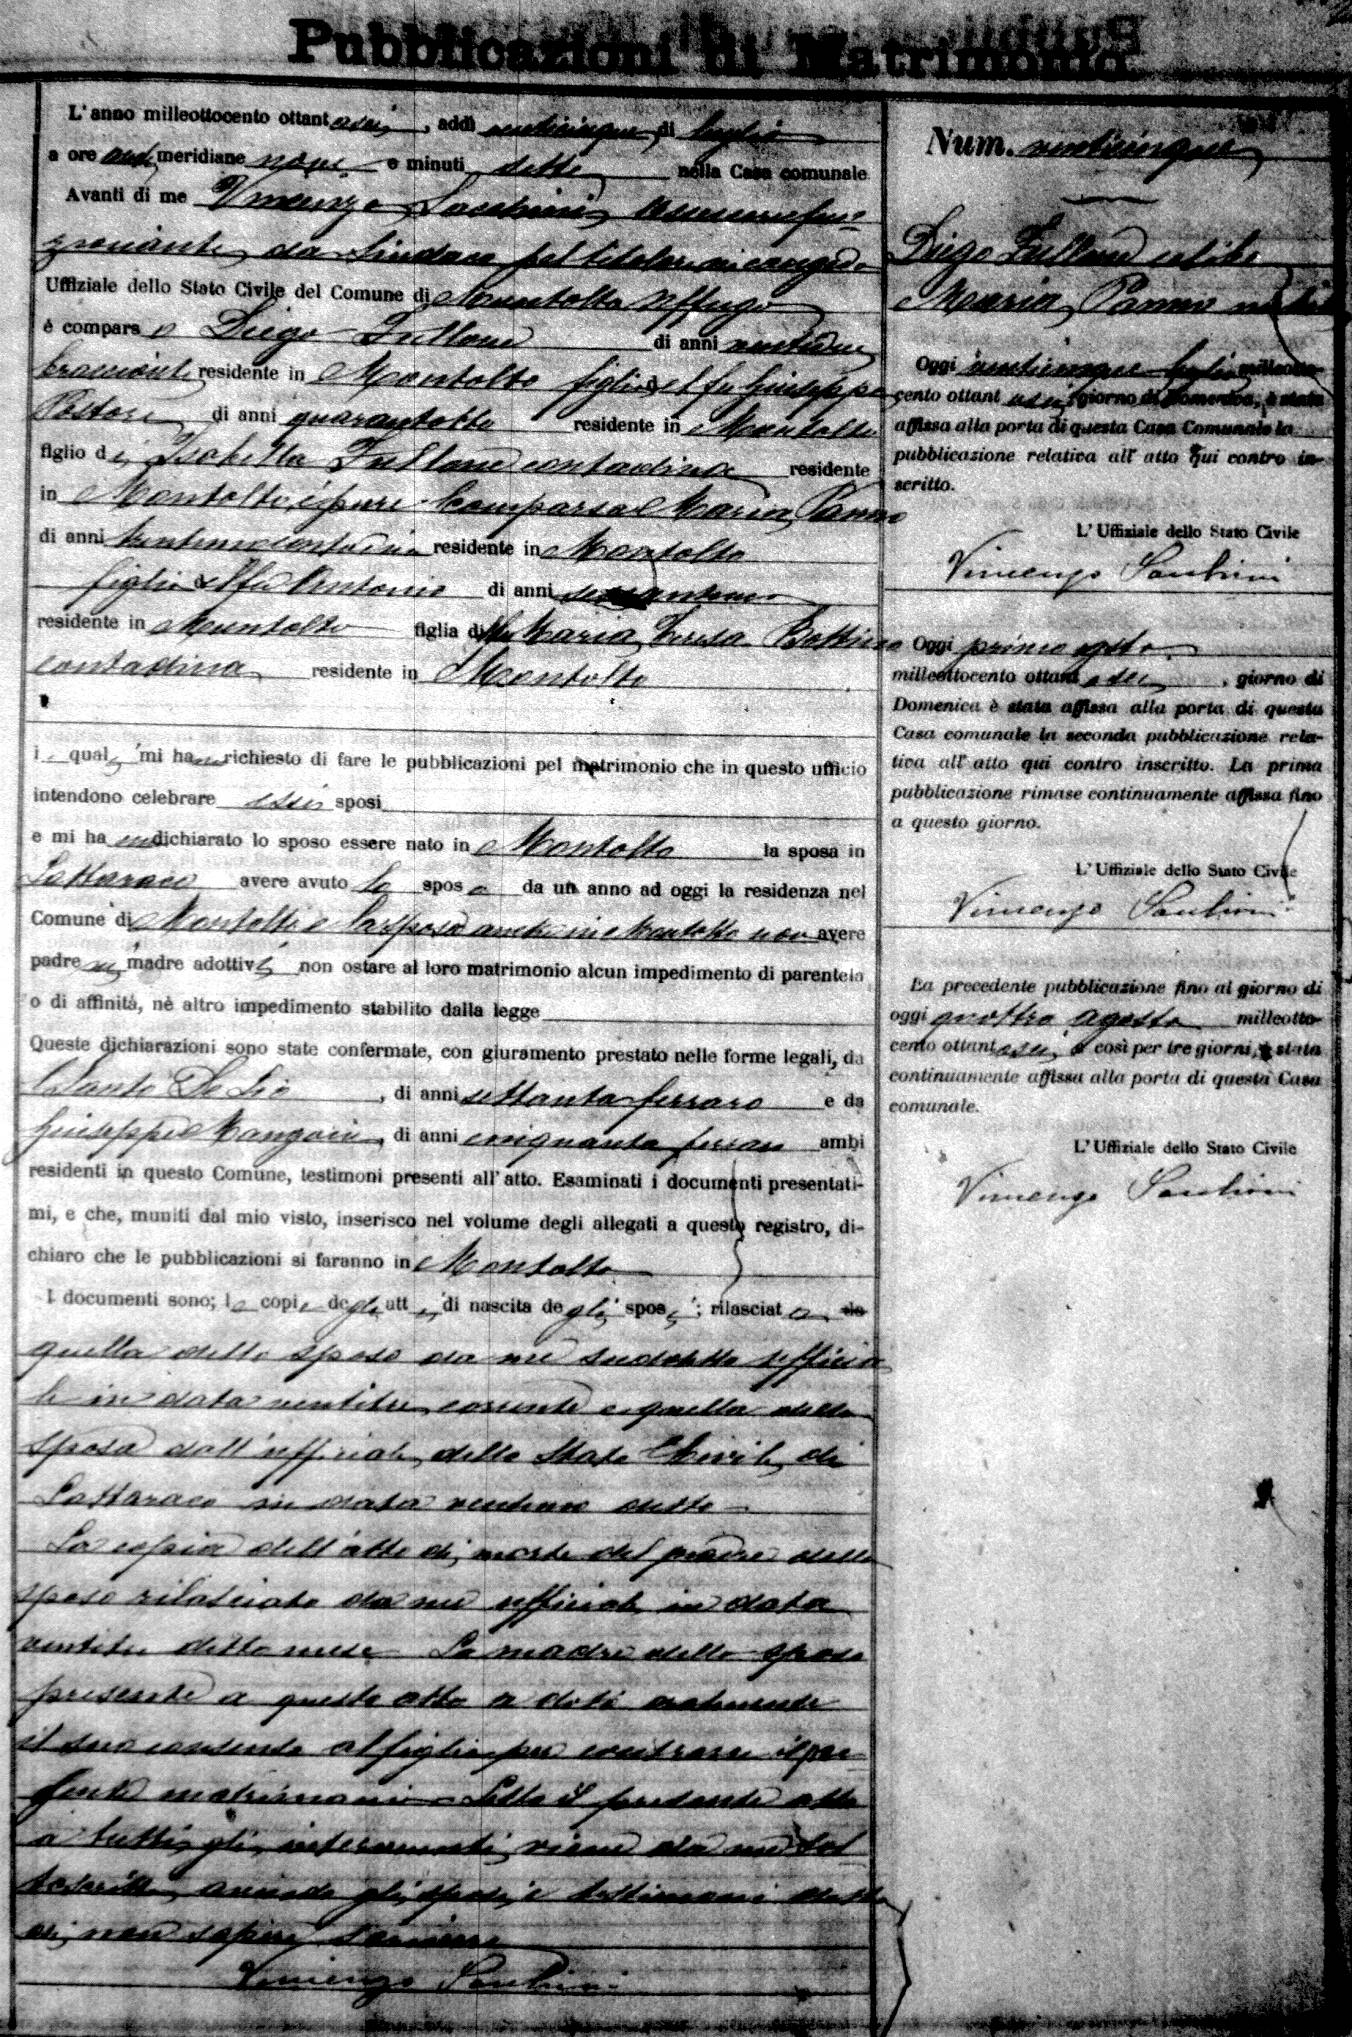 Pubblicazioni di Matrimonio
L'anno milleottocento ottantasei, addì venticinque di luglio
a ore anti meridiane nove e minuti sette nella Casa comunale
Avanti di me Vincenzo
da Sindaco pel titolare in congedo
Uffiziale dello Stato Civile del Comune di Montalto Uffugo
è comparso Diego Fullone di anni ventidue
bracciante residente in Montalto figlio del fu Giuseppe
Pastore di anni quarantotto residente in Montalto
figlio di Isabella Fullone contadina residente
in Montalto, è pure comparsa Maria Panno
di anni contadina residente in Montalto
figlia del fu Antonio di anni
residente in Montalto figlia di Maria Teresa
contadina residente in Montalto
i quali mi han richiesto di fare le pubblicazioni pel matrimonio che in questo ufficio
intendono celebrare essi sposi
e mi ha dichiarato lo sposo essere nato in Montalto la sposa in
Lattaraco avere avuto lo sposo da un anno ad oggi la residenza nel
Comune di Montalto e la sposa anche in Montalto non avere
padre nè madre adottivi non ostare al loro matrimonio alcun impedimento di parentela
o di affinità, nè altro impedimento stabilito dalla legge
Queste dichiarazioni sono state confermate, con giuramento prestato nelle forme legali, da
Santo De Lio, di anni settanta ferraro e da
Giuseppe, di anni cinquanta ferraro ambi
residenti in questo Comune, testimoni presenti all'atto. Esaminati i documenti presentati-
mi, e che, muniti dal mio visto, inserisco nel volume degli allegati a questo registro, di-
chiaro che le pubblicazioni si faranno in Montalto
I documenti sono; le copie degli atti di nascita degli sposi; rilasciata
quella dello sposo da me sudettoufficia
le in data ventitre corrente e quella della
sposa dall'ufficiale dello Stato Civile di
Lattaraco in data ventuno detto
La copia dell'atto di morte del padre dello
sposo rilasciata da me ufficiale in data
ventitre detto mese La madre dello sposo
presente a questo atto a dato
il suo consenso al figlio per contrarre il pre
sente matrimonio. Letto il presente atto
a tutti gli intervenuti viene da me sot
toscritto, avendo gli sposi e testimoni detto
di non sapere scrivere
Vincenzo
Num. venticinque
Diego Fullone celibe
e Maria Panno nubile
Oggi venticinque luglio milleotto-
cento ottantasei, giorno di Domenica, è stata
affissa alla porta di questa Casa Comunale la
pubblicazione relativa all'atto qui contro in-
scritto.
L'Uffiziale dello Stato Civile
Vincenzo
Oggi primo agosto
milleottocento ottantasei, giorno di
Domenica è stata affissa alla porta di questa
Casa comunale la seconda pubblicazione rela-
tiva all'atto qui contro inscritto. La prima
pubblicazione rimase continuamente affissa fino
a questo giorno.
L'Uffiziale dello Stato Civile
Vincenzo
La precedente pubblicazione fino al giorno di
oggi quattro agosto milleotto-
cento ottantasei, e così per tre giorni, è stata
continuamente affissa alla porta di questa Casa
comunale.
L'Uffiziale dello Stato Civile
Vincenzo